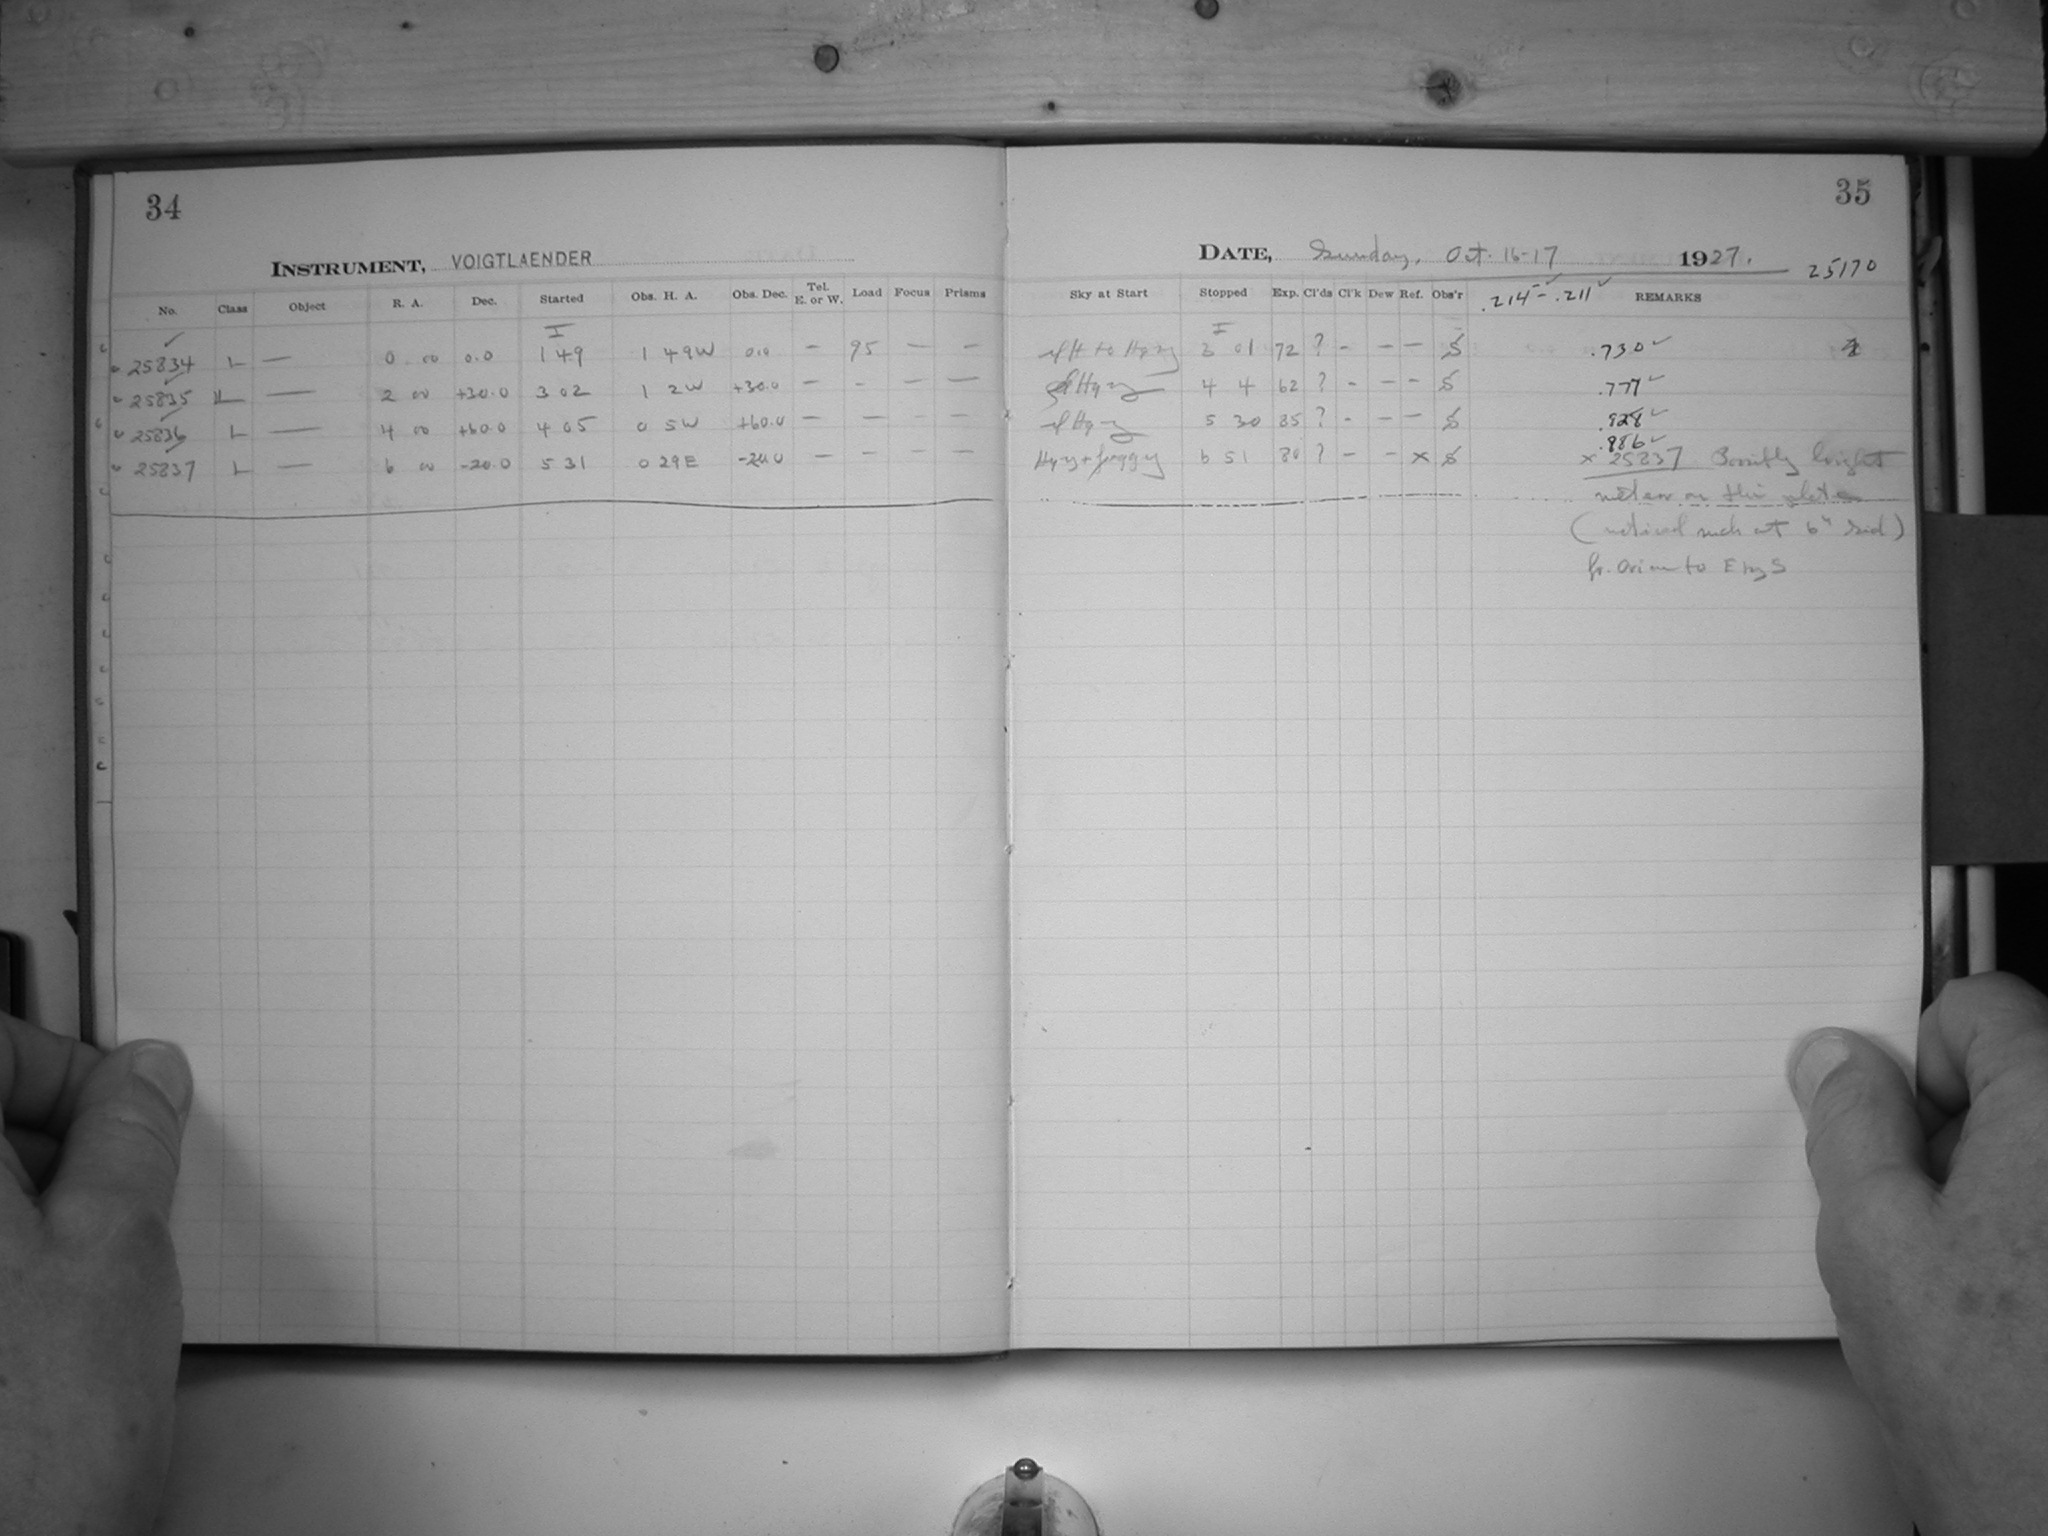 34
35
INSTRUMENT, VOIGTLAENDER
DATE, Sunday, Oct. 16-17 1927.
25170
No. Class Object R. A. Dec. Started Obs. H. A. Obs. Dec. Tel. E. or W. Load Focus Prisms Sky at Start Stopped Exp. Cl'ds Cl'k Dew Ref. Obs'r .214 - .211 REMARKS
I I
25834 L — 0 00 0.0 1 49 1 49W 0.0 — 95 — — to Hazy 3 01 72 ? - — — S .730 ✓
25835 L — 2 00 +30.0 3 02 1 2W +30.0 — - — — Hazy 4 4 62 ? - — — S .777 ✓
25836 L — 4 00 +60.0 4 05 0 5W +60.0 — — — — Hazy 5 30 85 ? - — — S .828 ✓
.886 ✓
25837 L — 6 00 -20.0 5 31 0 29E -20.0 — — — — Hazy + foggy 6 51 80 ? - — x S x 25837 Possibly bright
meteor on this plate
(noticed such at 6h sid)
fr. Orion to E by S